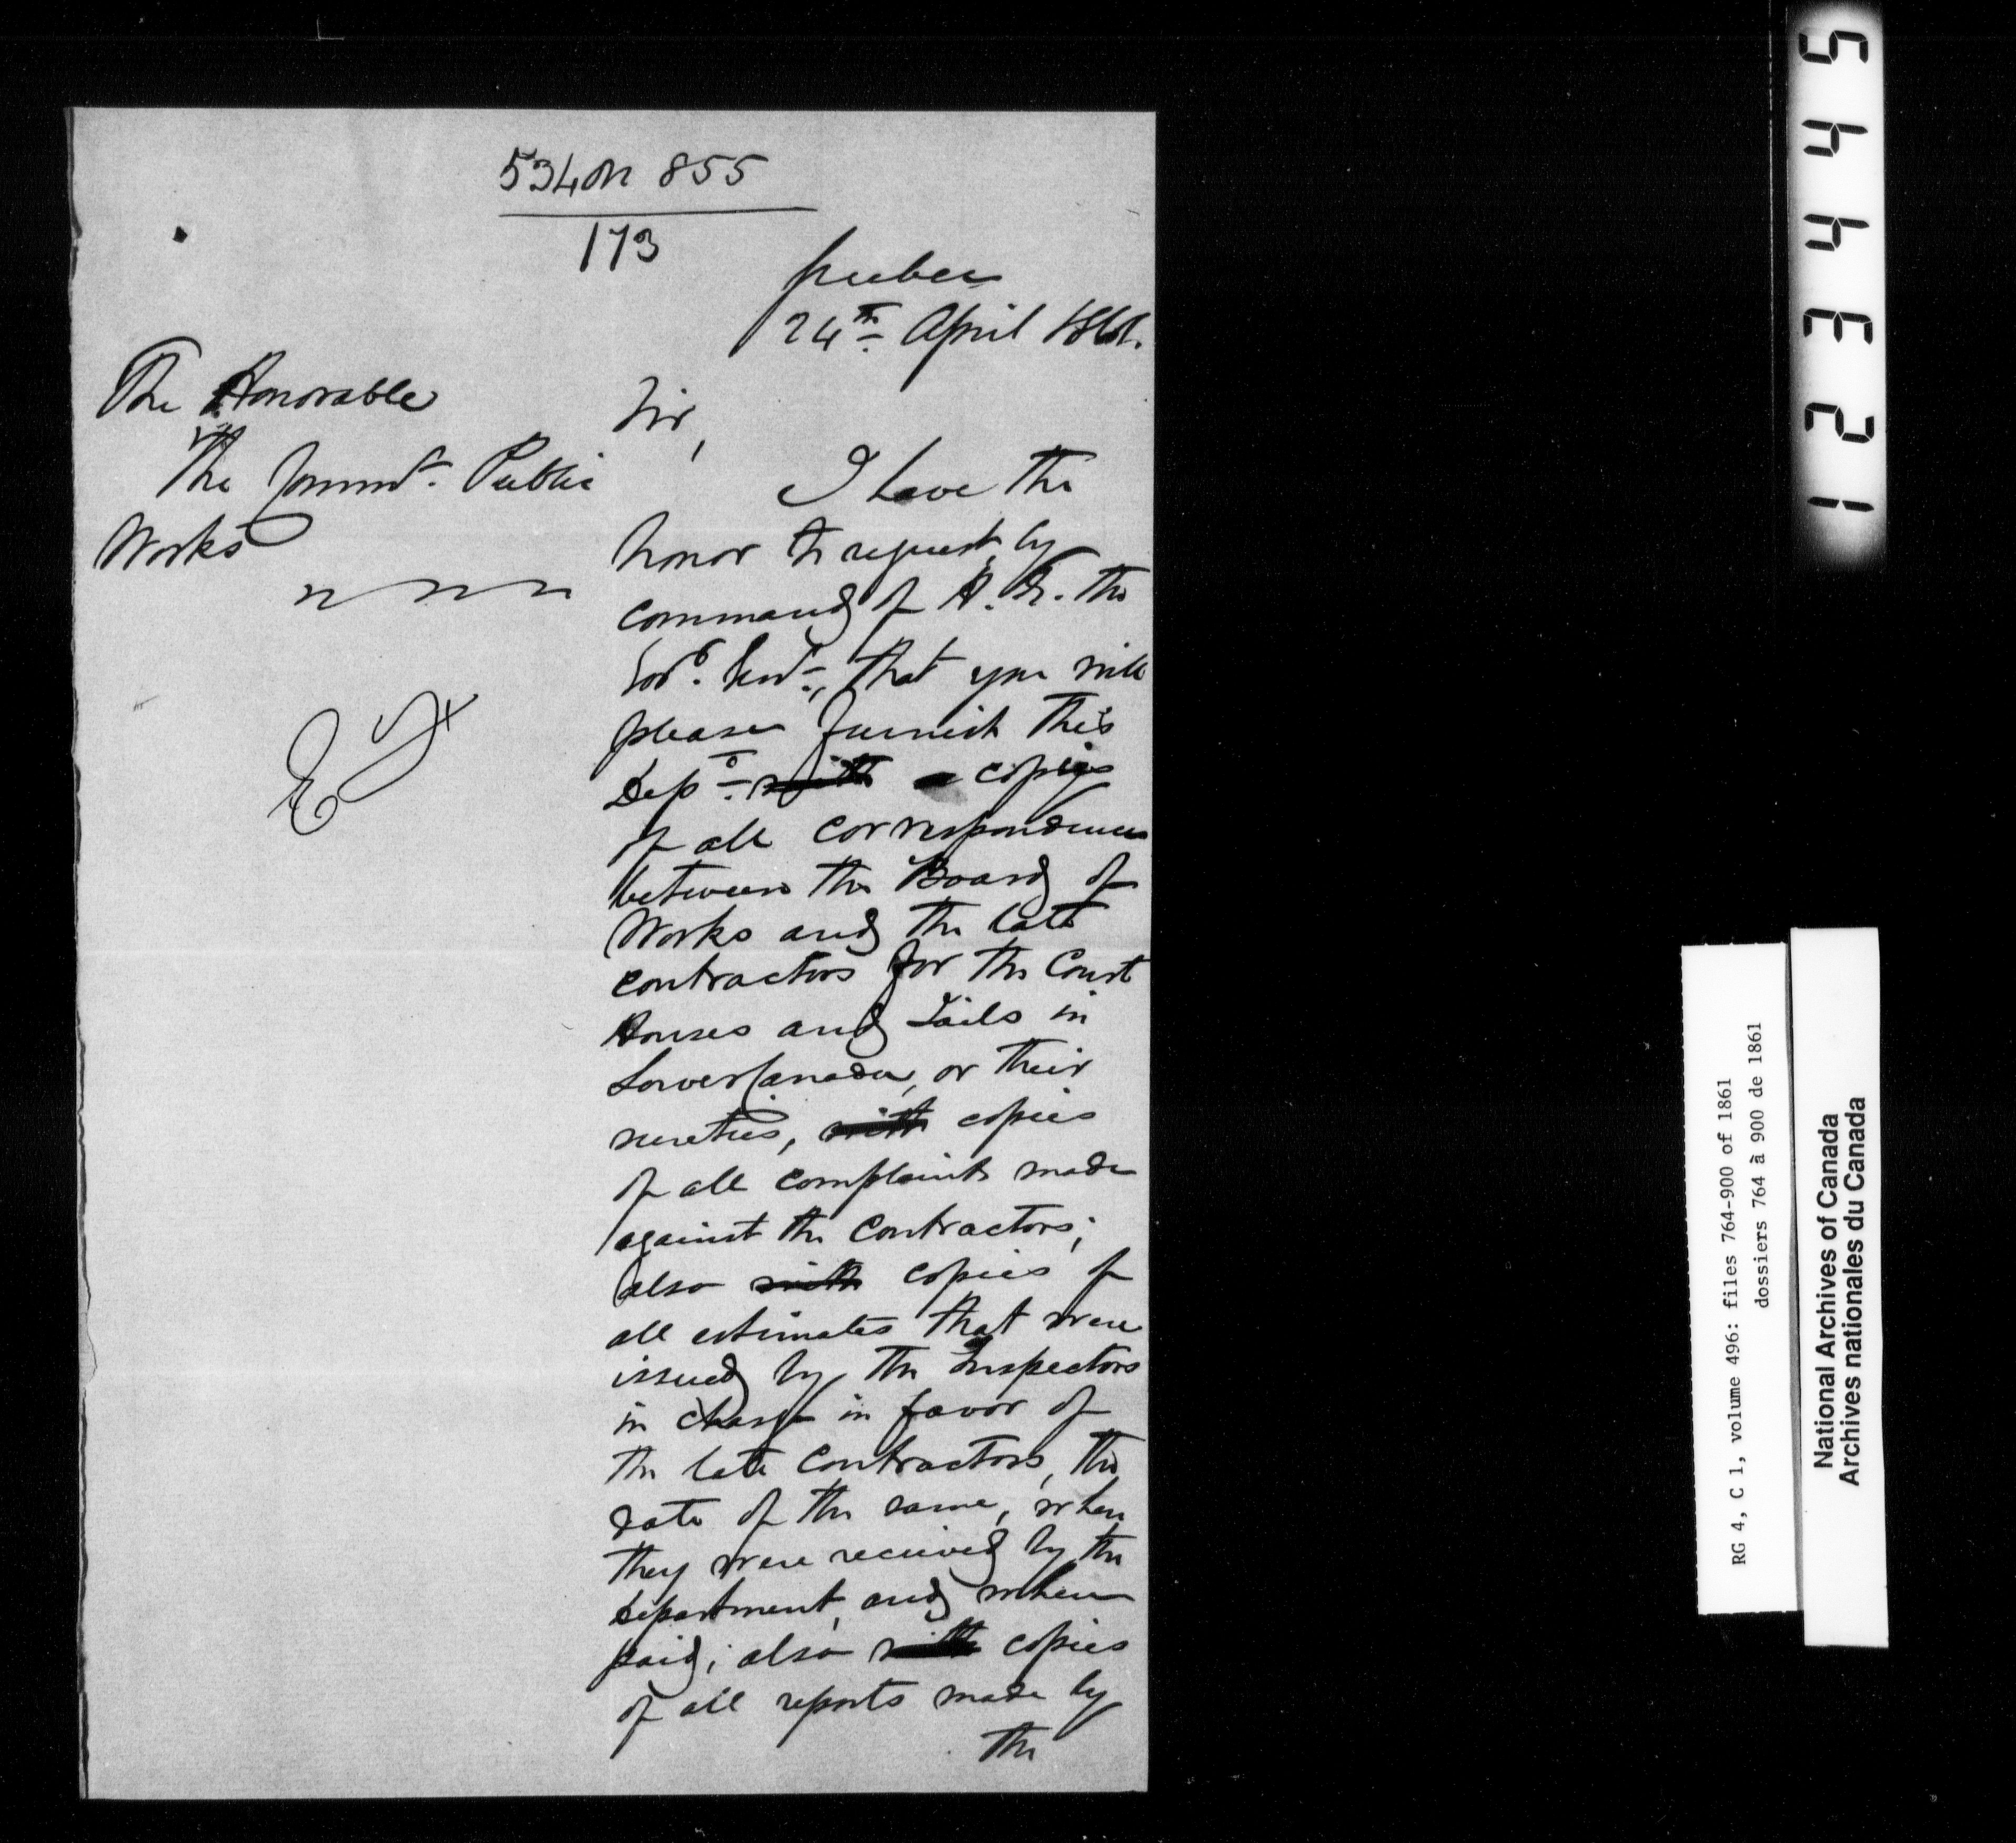 534 on 855
173
Quebec
24th April 1861.
The Honorable
The Commr. Public
Works
Sir,
I have the
honor to request, by
command of H. E. the
Govr. Genl., that you will
please furnish this
Dept. with a copies
of all correspondence
between the Board of
Works and the late
contractors for the Court
Houses and Jails in
Lower Canada, or their
sureties, with copies
of all complaints made
against the Contractors;
also with copies of
all estimates that were
issued by the Inspectors
in charge in favor of
the late Contractors, the
date of the same, when
they were received by the
Department, and when
paid; also with copies
of all reports made by
the
1234445
RG 4, C 1, volume 496: files 764-900 of 1861
dossiers 764 à 900 de 1861
National Archives of Canada
Archives nationales du Canada